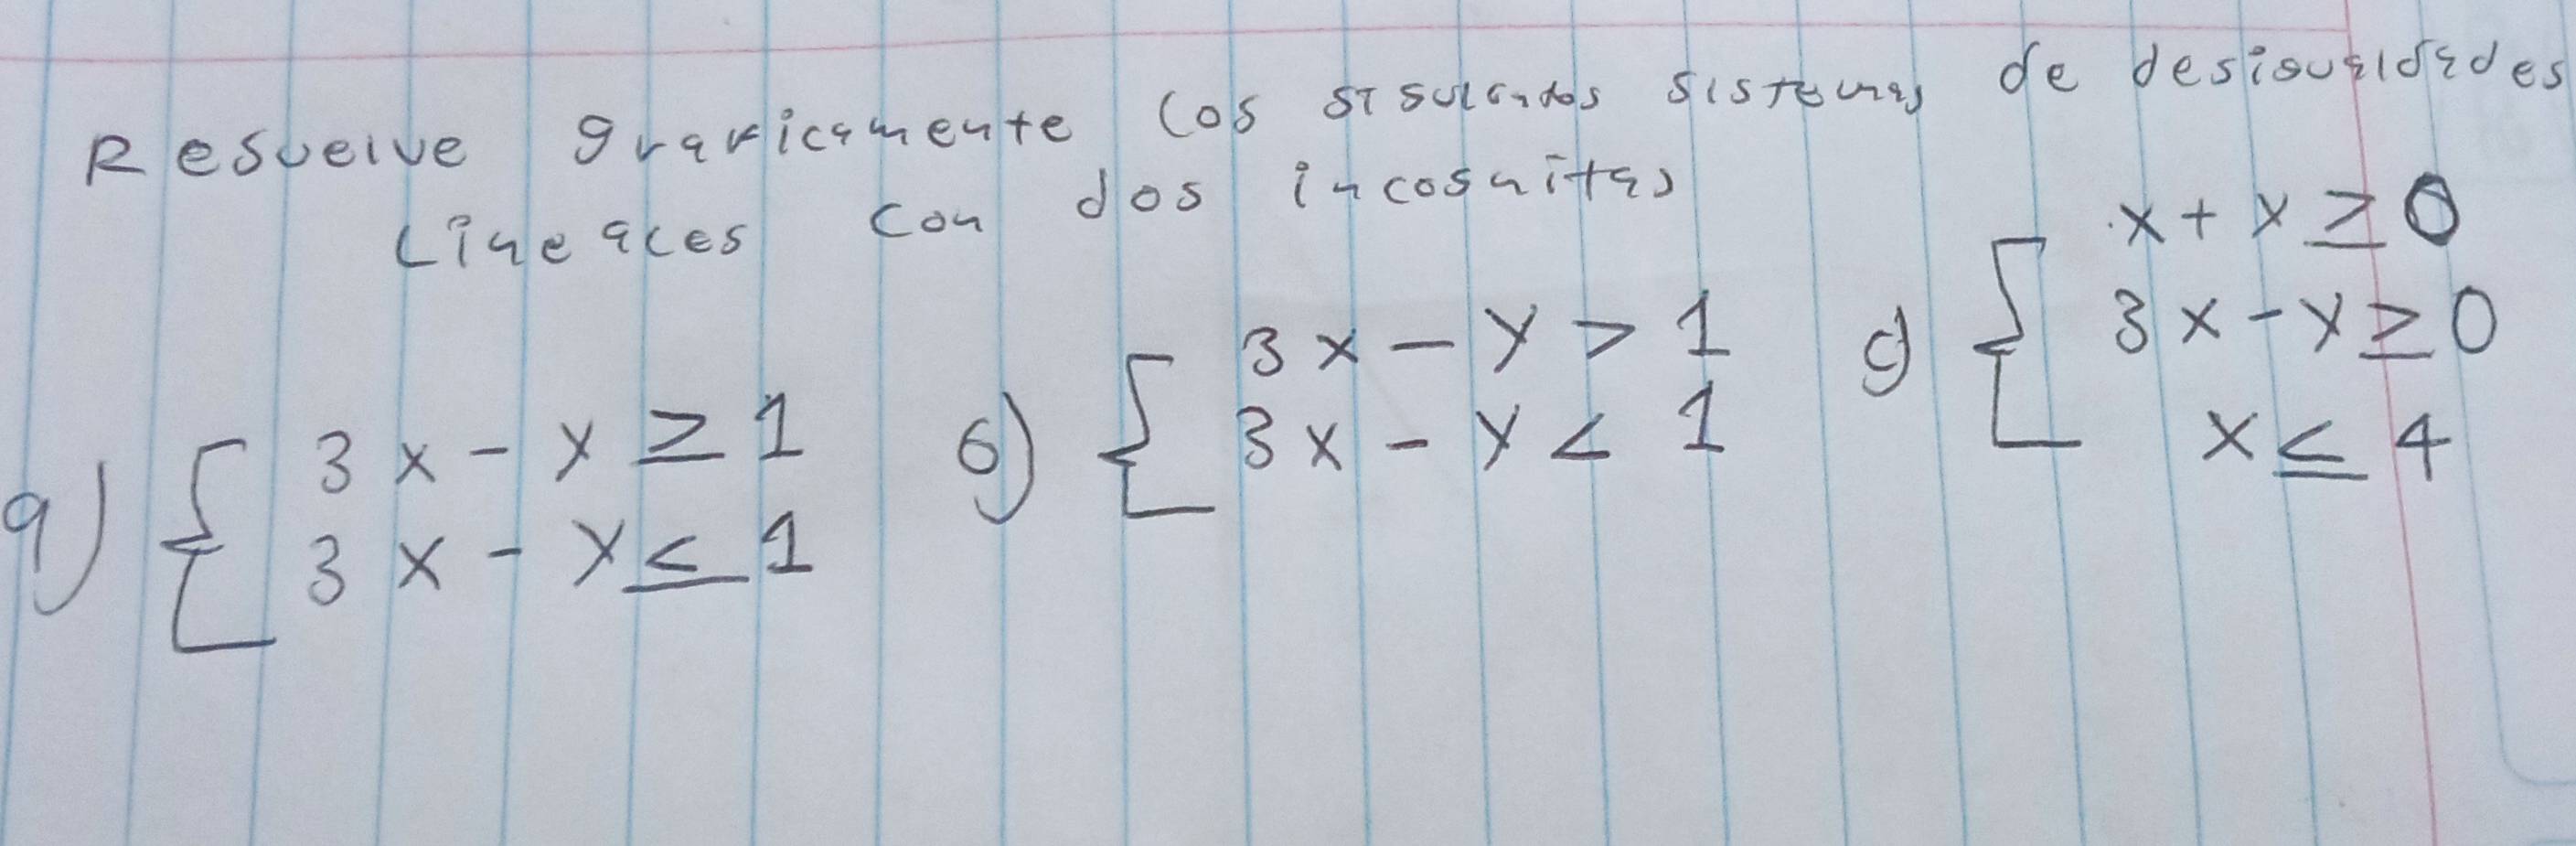 Resuelve graficamente los siguientes sistemas de desigualdades
lineales con dos incognitas
a) { 3x - y ≥ 1
3x - y ≤ 1
b) { 3x - y > 1
3x - y < 1
c) { x + y ≥ 0
3x - y ≥ 0
x ≤ 4